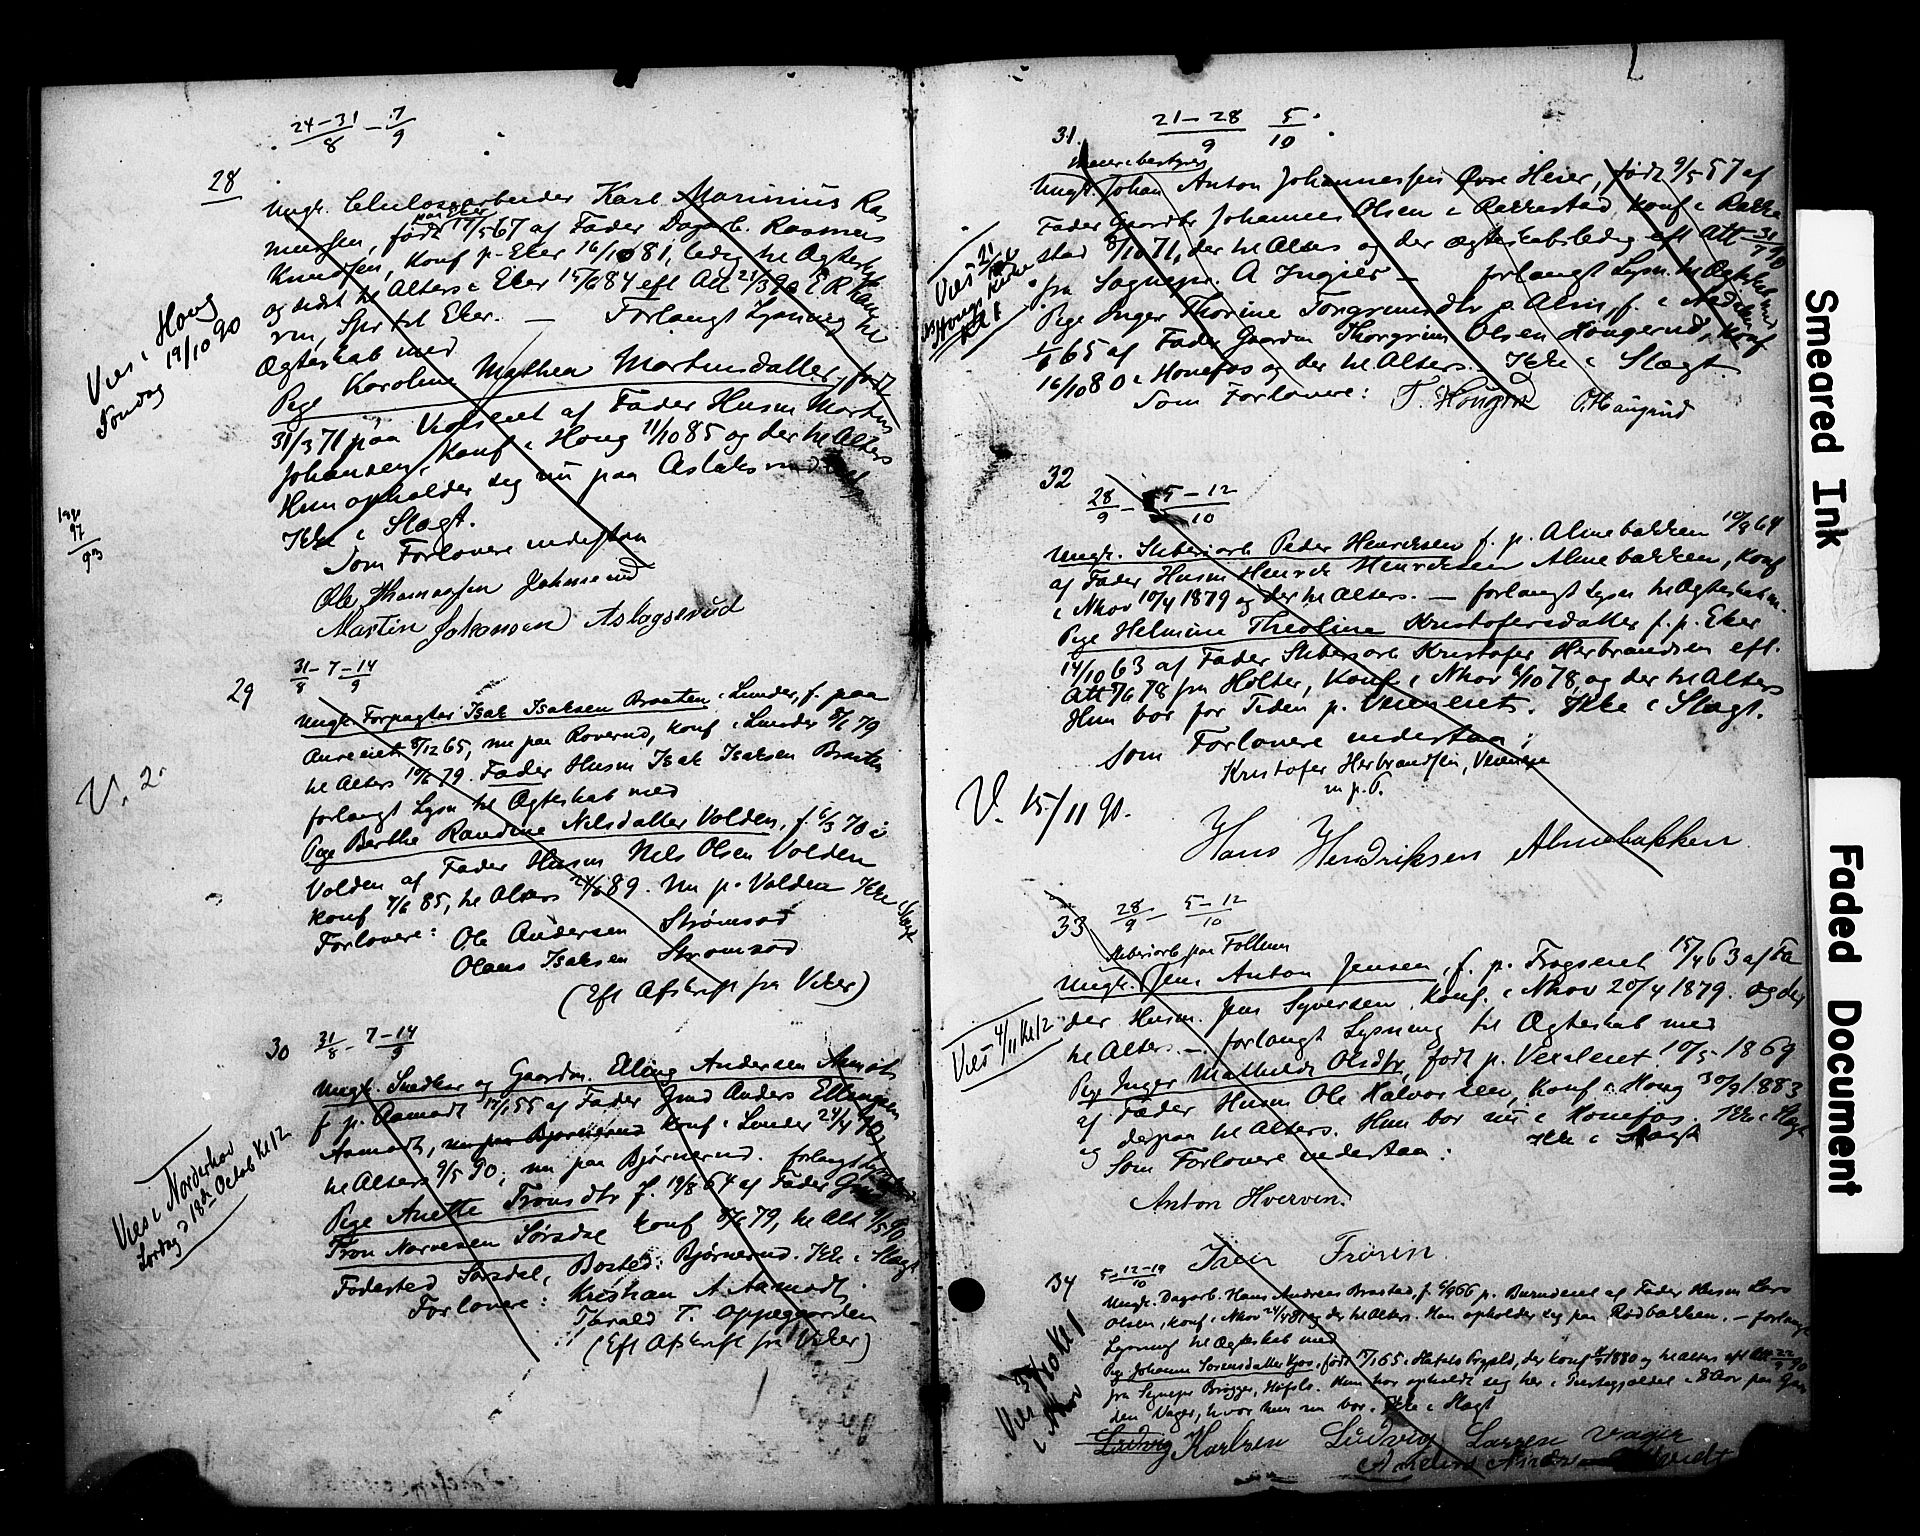 24–31/8 – 7/9
28
Ungk. Celulosearbeider Karl Marinius Ras
paa Eker
mussen, født 17/5 67 af Fader Dagarb. Rasmus
Knudsen, Konf p. Eker 16/10 81, ledig til Ægtesk
og sidst til Alters i Eker 15/6 84 eft Att 21/3 90
Sp. til Eker. — Forlangt Lysning til
Ægteskab med
Pige Karoline Mathea Martinsdatter, født
31/3 71 paa af Fader Husm Martin
Johansen, Konf i Houg 11/10 85 og der til Alters
Hun opholder sig nu paa
Ikke i Slægt.
Som Forlovere undertan
Ole Thomassen
Martin Johansen Aslagsrud
Vies i Houg
Søndag 19/10 90
97
93
29
31/8 – 7–14/9
Ungk. Forpagter Isak Isaksen Braaten i Lunder, f. paa
8/12 65, nu paa Roverud, konf i Lunder 8/6 79
til Alters 10/6 79. Fader Husm Isak Isaksen Braaten
forlangt Lysn til Ægteskab med
Pige Berthe Randine Nilsdatter Volden, f. 6/3 70 i
Volden af Fader Husm Nels Olsen Volden
Konf 7/6 85, til Alters 24/6 89. Nu p. Volden Ikke i Slægt
Forlovere: Ole Andersen Strømsod
Olaus Isaksen Strømsod
(Eft Afskrift fra Viker)
V. 2
30
31/8 – 7–14/9
Ungk. Snedker og Gaardm. Elling Andersen Aamodt
f. p. Aamodt 17/1 55 af Fader Gmd Anders Ellingsen
Aamodt, nu paa Bjørnerud konf i Lunder 24/4 70,
til Alters 9/5 90, nu paa Bjørnerud. forlangt Lysn
Pige Anette Tronsdtr f. 19/8 64 af Fader
Tron Narvesen Sørsdal konf 8/6 79, til Alt 9/5 90
Fødested Sørsdal, Bosted: Bjørnerud. Ikke i Slægt
Forlovere: Kristian A Aamodt
Harald T. Oppegaarden
(Eft Afskrift fra Viker)
Vies i Norderhov
Lørdag d 18de Octob Kl 12
31.
21–28/9 5/10
Meieribestyrer
Ungk. Johan Anton Johannessen Øvre Heier, født 9/5 57 af
Fader Gaardbr Johannes Olsen i Rakkestad, konf i Rakke
stad 8/10 71, der til Alters og der Ægteskabsledig eft Att 31/7 90
fra Sognepr. A Ingier — forlangt Lysn. til Ægteskab med
Pige Inger Thorine Torgrimsdtr p Alm, f. i
1/6 65 af Fader Gaardm Thorgrim Olsen Hougerud, Konf
16/10 80 i Honefos og der til Alters. Ikke i Slægt.
Som Forlovere: T. Hougrud O. Haugrud
Vies 21/
i Hougs Kirke
Kl 1
32
28/9 – 5–12/10
Ungk. Sliberiarb Peder Henriksen f. p. Almebakken 10/9 64
af Fader Husm Henrik Henriksen Almebakken, Konf
i Nhov 10/4 1879 og der til Alters. — forlangt Lysn til Ægteskab m.
Pige Helmine Theoline Kristofersdatter f. p. Eker
14/10 63 af Fader Slibersarb Kristofer Herbrandsen eft.
Att 8/6 78 fra Holter, Konf i Nhov 6/10 78, og der til Alters
Hun bor for Tiden p. Veieneiet. Ikke i Slægt.
Som Forlovere undertaa:
Kristofer Herbrandsen, Veieneie
m. p. P.
V. 15/11 90.
Hans Hendriksen Almebakken
33
28/9 – 5–12/10
Sliberiarb paa Follum
Ungk. Jens Anton Jensen, f. p. Frogseiet 15/4 63 af Fa
der Husm. Jens Syversen, Konf. i Nhov 20/4 1879. og der
til Alters. — forlangt Lysning til Ægteskab med
Pige Inger Mathilde Olsdtr, født p. Vexaleiet 10/5 1869
af Fader Husm Ole Halvorsen, Konf i Houg 30/9 1883
og derpaa til Alters. Hun bor nu i Honefos. Ikke i Slægt
Ikke i Slægt
Som Forlovere undertaa:
Anton Hverven.
Iver Frøsin
Vies 4/11 Kl 12
34
5–12–19/10
Ungk. Dagarb. Hans Andreas Brastad, f. 6/9 66 p. Burudeiet af Fader Husm Lars
Olsen, Konf i Nhov 24/4 81 og der til Alters. Han opholder sig paa Rødbakken. — forlangt
Lysning til Ægteskab med
Pige Johanne Sorensdatter Kjos, født 17/1 65 i Prgjeld, der konf 1880 og til Alters eft Att 22/9 90
fra Sognepr Brøgger, Hofsl. Hun har opholdt sig her i Prestegjældet i 8 Aar paa Gaar
den Vager, hvor hun nu bor. Ikke i Slægt
Ludvig Karlsen Ludvig Larsen Vager
Vies 30/10 Kl 1
i Nhov
Smeared Ink
Faded Document